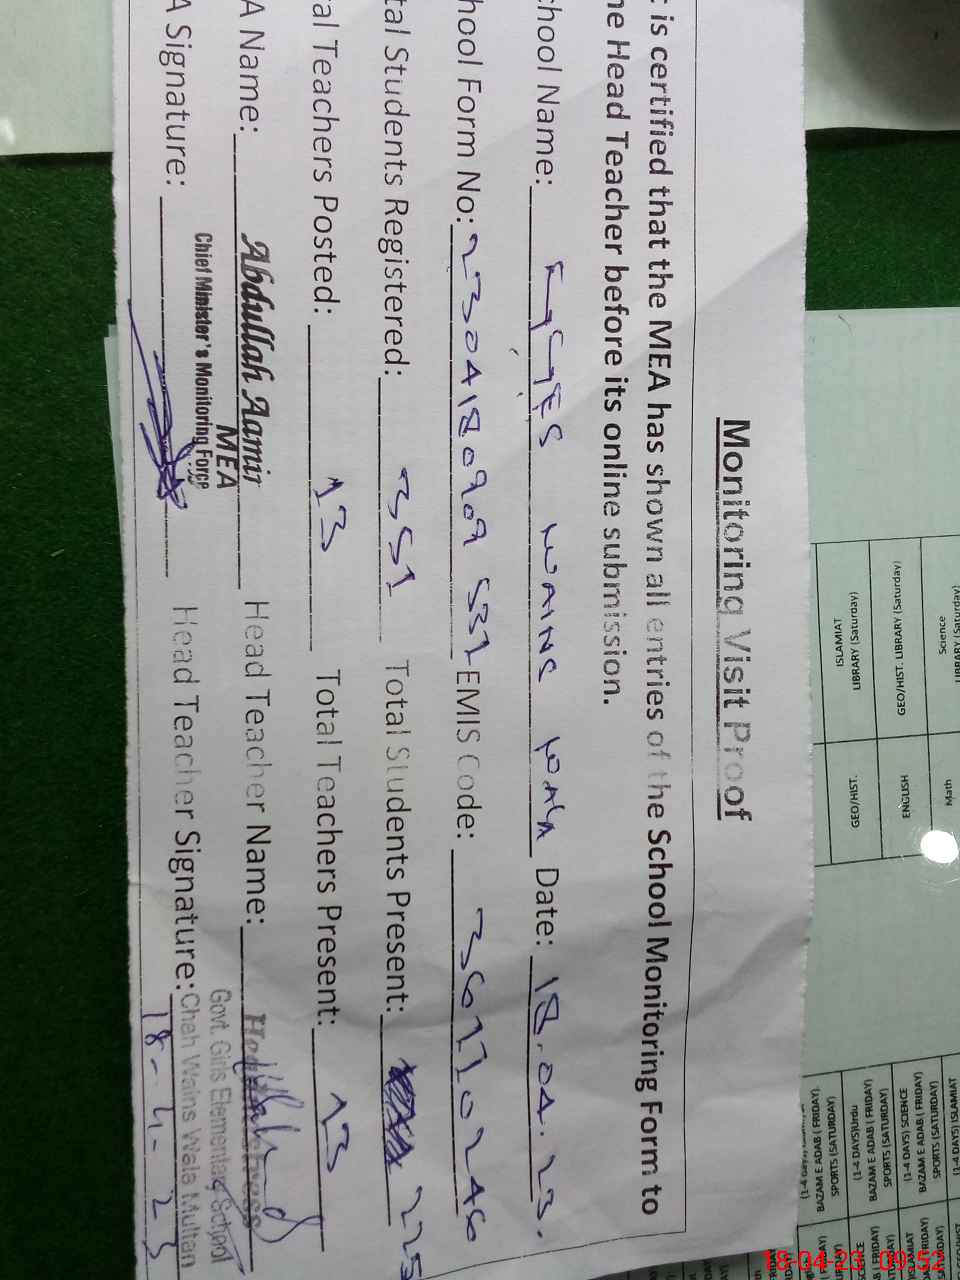 Monitoring Visit Proof
t is certified that the MEA has shown all entries of the School Monitoring Form to
he Head Teacher before its online submission.
chool Name: WAINS Date: 18.04.23.
hool Form No: EMIS Code:
tal Students Registered: 351 Total Students Present: 225
al Teachers Posted: 13 Total Teachers Present: 13
A Name: Abdullah Aamir Head Teacher Name:
MEA
Chief Minister's Monitoring Force
A Signature: Head Teacher Signature:
Govt. Girls Elementary School
Chah Wains Wala Multan
18-4-23
ISLAMIAT
LIBRARY (Saturday)
GEO/HIST.
GEO/HIST. LIBRARY (Saturday)
ENGLISH
Science
LIBRARY (Saturday)
Math
BAZAM E ADAB ( FRIDAY)
SPORTS (SATURDAY)
(1-4 DAYS)Urdu
BAZAM E ADAB ( FRIDAY)
SPORTS (SATURDAY)
(1-4 DAYS) SCIENCE
BAZAM E ADAB ( FRIDAY)
SPORTS (SATURDAY)
(1-4 DAYS) ISLAMIAT
18-04-23 09:52